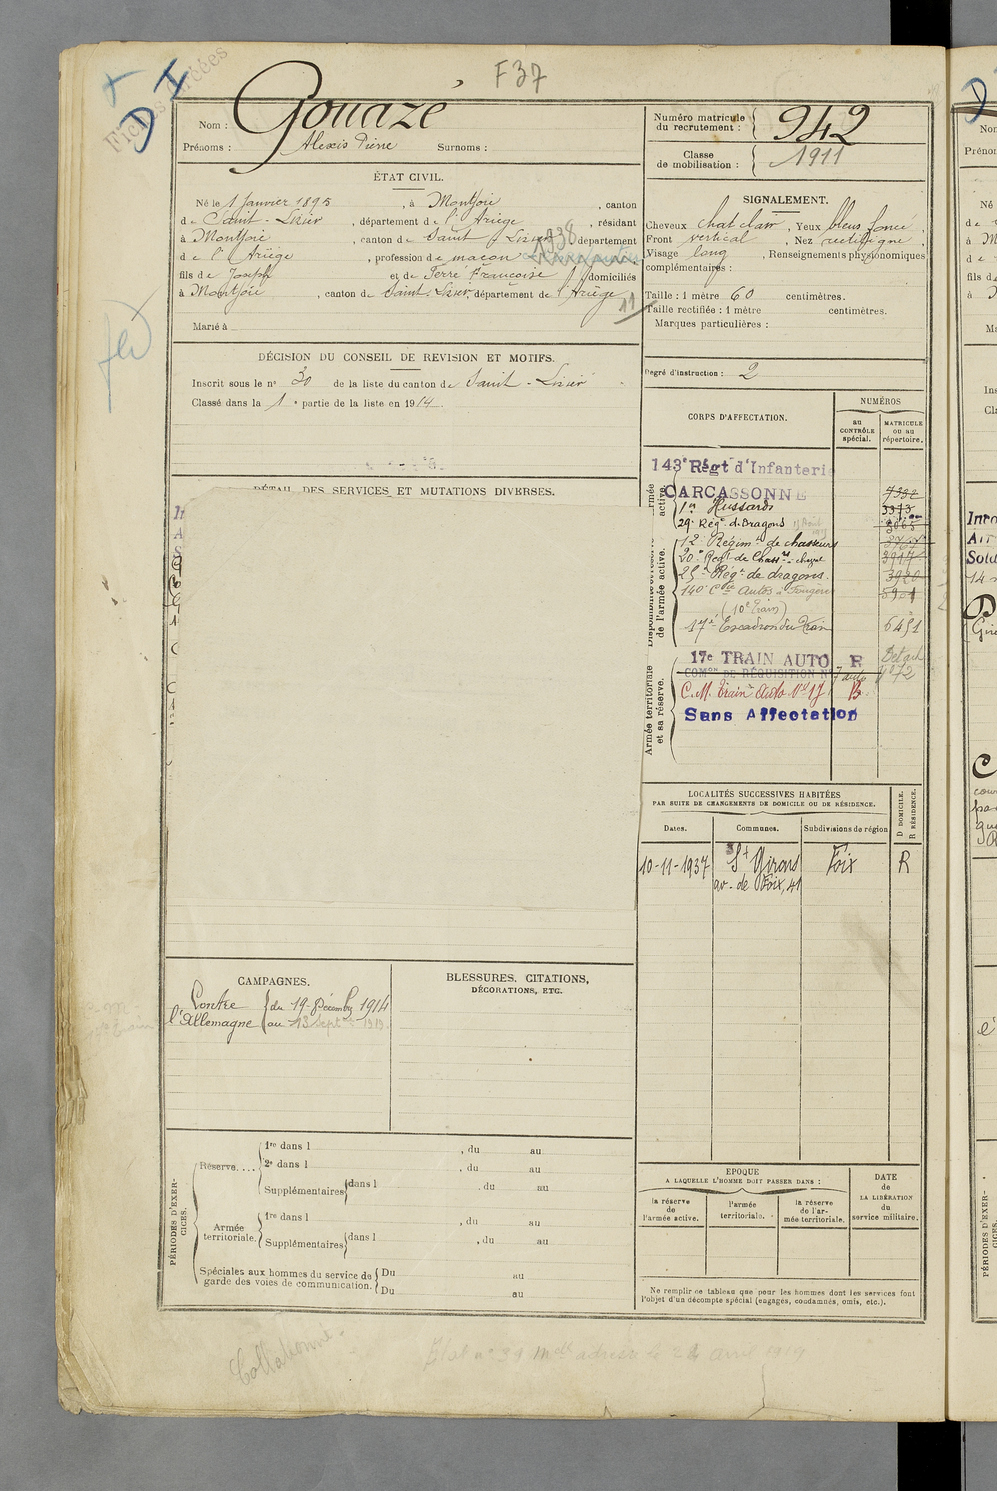 F37
D I
Fiches
Nom : Gouazé
Prénoms : Alexis Pierre Surnoms :
Numéro matricule du recrutement : 942
Classe de mobilisation : 1911
ÉTAT CIVIL.
Né le 1 Janvier 1895, à Montjoie, canton
de Saint-Lizier, département de l'Ariège, résidant
à Montjoie, canton de Saint-Lizier département
1938
de l'Ariège, profession de maçon
fils de Joseph et de Ferré Françoise domiciliés
à Montjoie, canton de Saint-Lizier, département de l'Ariège
11
Marié à
SIGNALEMENT.
Cheveux chat clair, Yeux bleus foncé
Front vertical, Nez rectiligne
Visage long, Renseignements physionomiques
complémentaires :
Taille : 1 mètre 60 centimètres.
Taille rectifiée : 1 mètre centimètres.
Marques particulières :
Degré d'instruction : 2
DÉCISION DU CONSEIL DE REVISION ET MOTIFS.
Inscrit sous le n° 30 de la liste du canton de Saint-Lizier
Classé dans la 1e partie de la liste en 1914.
DÉTAIL DES SERVICES ET MUTATIONS DIVERSES.
CORPS D'AFFECTATION.
NUMÉROS
au CONTRÔLE spécial.
MATRICULE OU AU répertoire.
armée active.
Disponibilité et réserve de l'armée active.
Armée territoriale et sa réserve.
143e Régt d'Infanterie
CARCASSONNE
1er Hussards 3373
29e Régt de Dragons
12e Régimt de chasseurs
20e Régt de Chassrs à cheval 3917
25e Régt de dragons. 3920
140 Cie Autos à Fougère
(10e Train)
17e Escadron du Train 6451
17e TRAIN AUTO R Détach
COMon DE RÉQUISITION N° 7 auto
C.M. Train Auto No 17 B.
Sans Affectation
LOCALITÉS SUCCESSIVES HABITÉES
PAR SUITE DE CHANGEMENTS DE DOMICILE OU DE RÉSIDENCE.
Dates. Communes. Subdivisions de région
D DOMICILE.
R RÉSIDENCE.
10-11-1937 St Girons Foix R
av. de Foix, 41
CAMPAGNES.
Contre l'Allemagne
du 19 Décemb 1914
au 13 Sept 1919
BLESSURES, CITATIONS,
DÉCORATIONS, ETC.
PÉRIODES D'EXERCICES.
Réserve....
1re dans l , du au
2e dans l , du au
Supplémentaires dans l . du au
Armée territoriale.
1re dans l , du au
Supplémentaires dans l , du au
Spéciales aux hommes du service de garde des voies de communication.
Du au
Du au
EPOQUE
A LAQUELLE L'HOMME DOIT PASSER DANS :
la réserve de l'armée active.
l'armée territoriale.
la réserve de l'armée territoriale.
DATE de LA LIBÉRATION du service militaire.
Ne remplir ce tableau que pour les hommes dont les services font
l'objet d'un décompte spécial (engagés, condamnés, omis, etc.).
Collationné.
Etat n° 39 Mdle adressé le 24 avril 1919